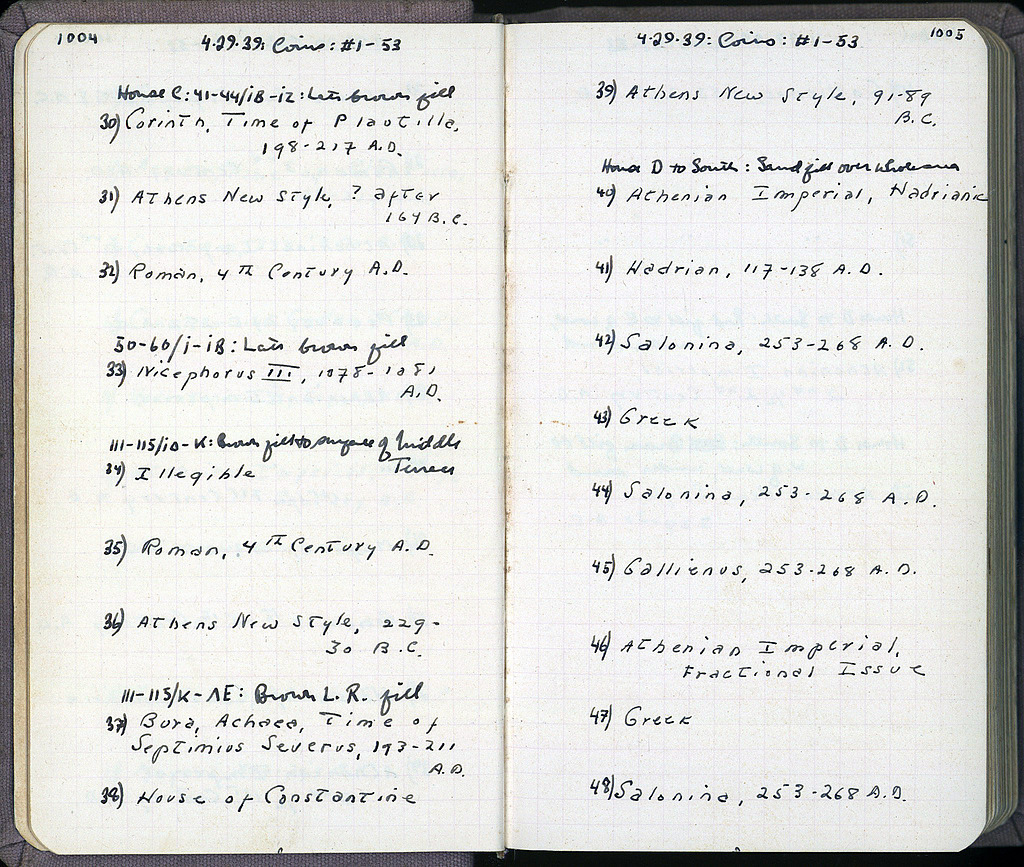 1004
4·29·39: Coins: #1-53
House C: 41-44/ιB-ιZ: Late brown fill
30) Corinth, Time of Plautilla,
198-217 A.D.
31) Athens New Style, ? after
164 B.C.
32) Roman, 4 TH Century A.D.
50-60/ι-ιB: Late brown fill
33) Nicephorus III, 1078-1081
A.D.
111-115/ιΘ-K: Brown fill to surface of Middle
Terrace
34) Illegible
35) Roman, 4 TH Century A.D.
36) Athens New Style, 229-
30 B.C.
111-115/K-ΛE: Brown L.R. fill
37) Bura, Achaea, Time of
Septimius Severus, 193-211
A.D.
38) House of Constantine
1005
4·29·39: Coins: #1-53
39) Athens New Style, 91-89
B.C.
House D to South: Sand fill over whole area
40) Athenian Imperial, Hadrianic
41) Hadrian, 117-138 A.D.
42) Salonina, 253-268 A.D.
43) Greek
44) Salonina, 253-268 A.D.
45) Gallienus, 253-268 A.D.
46) Athenian Imperial,
Fractional Issue
47) Greek
48) Salonina, 253-268 A.D.